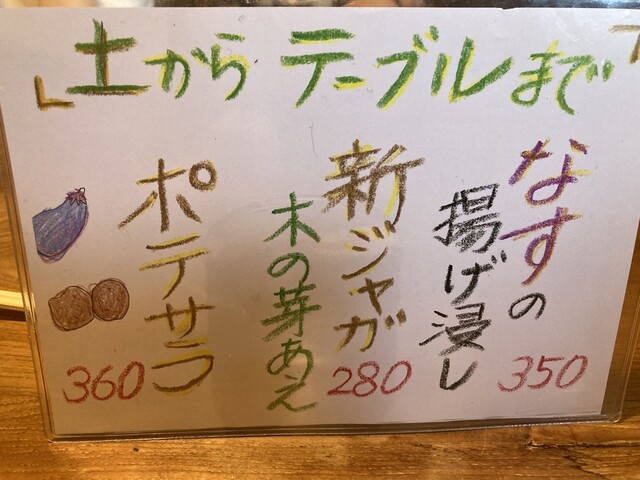 「土からテーブルまで」
なすの
揚げ浸し
350
新ジャガ
木の芽あえ
280
ポテサラ
360